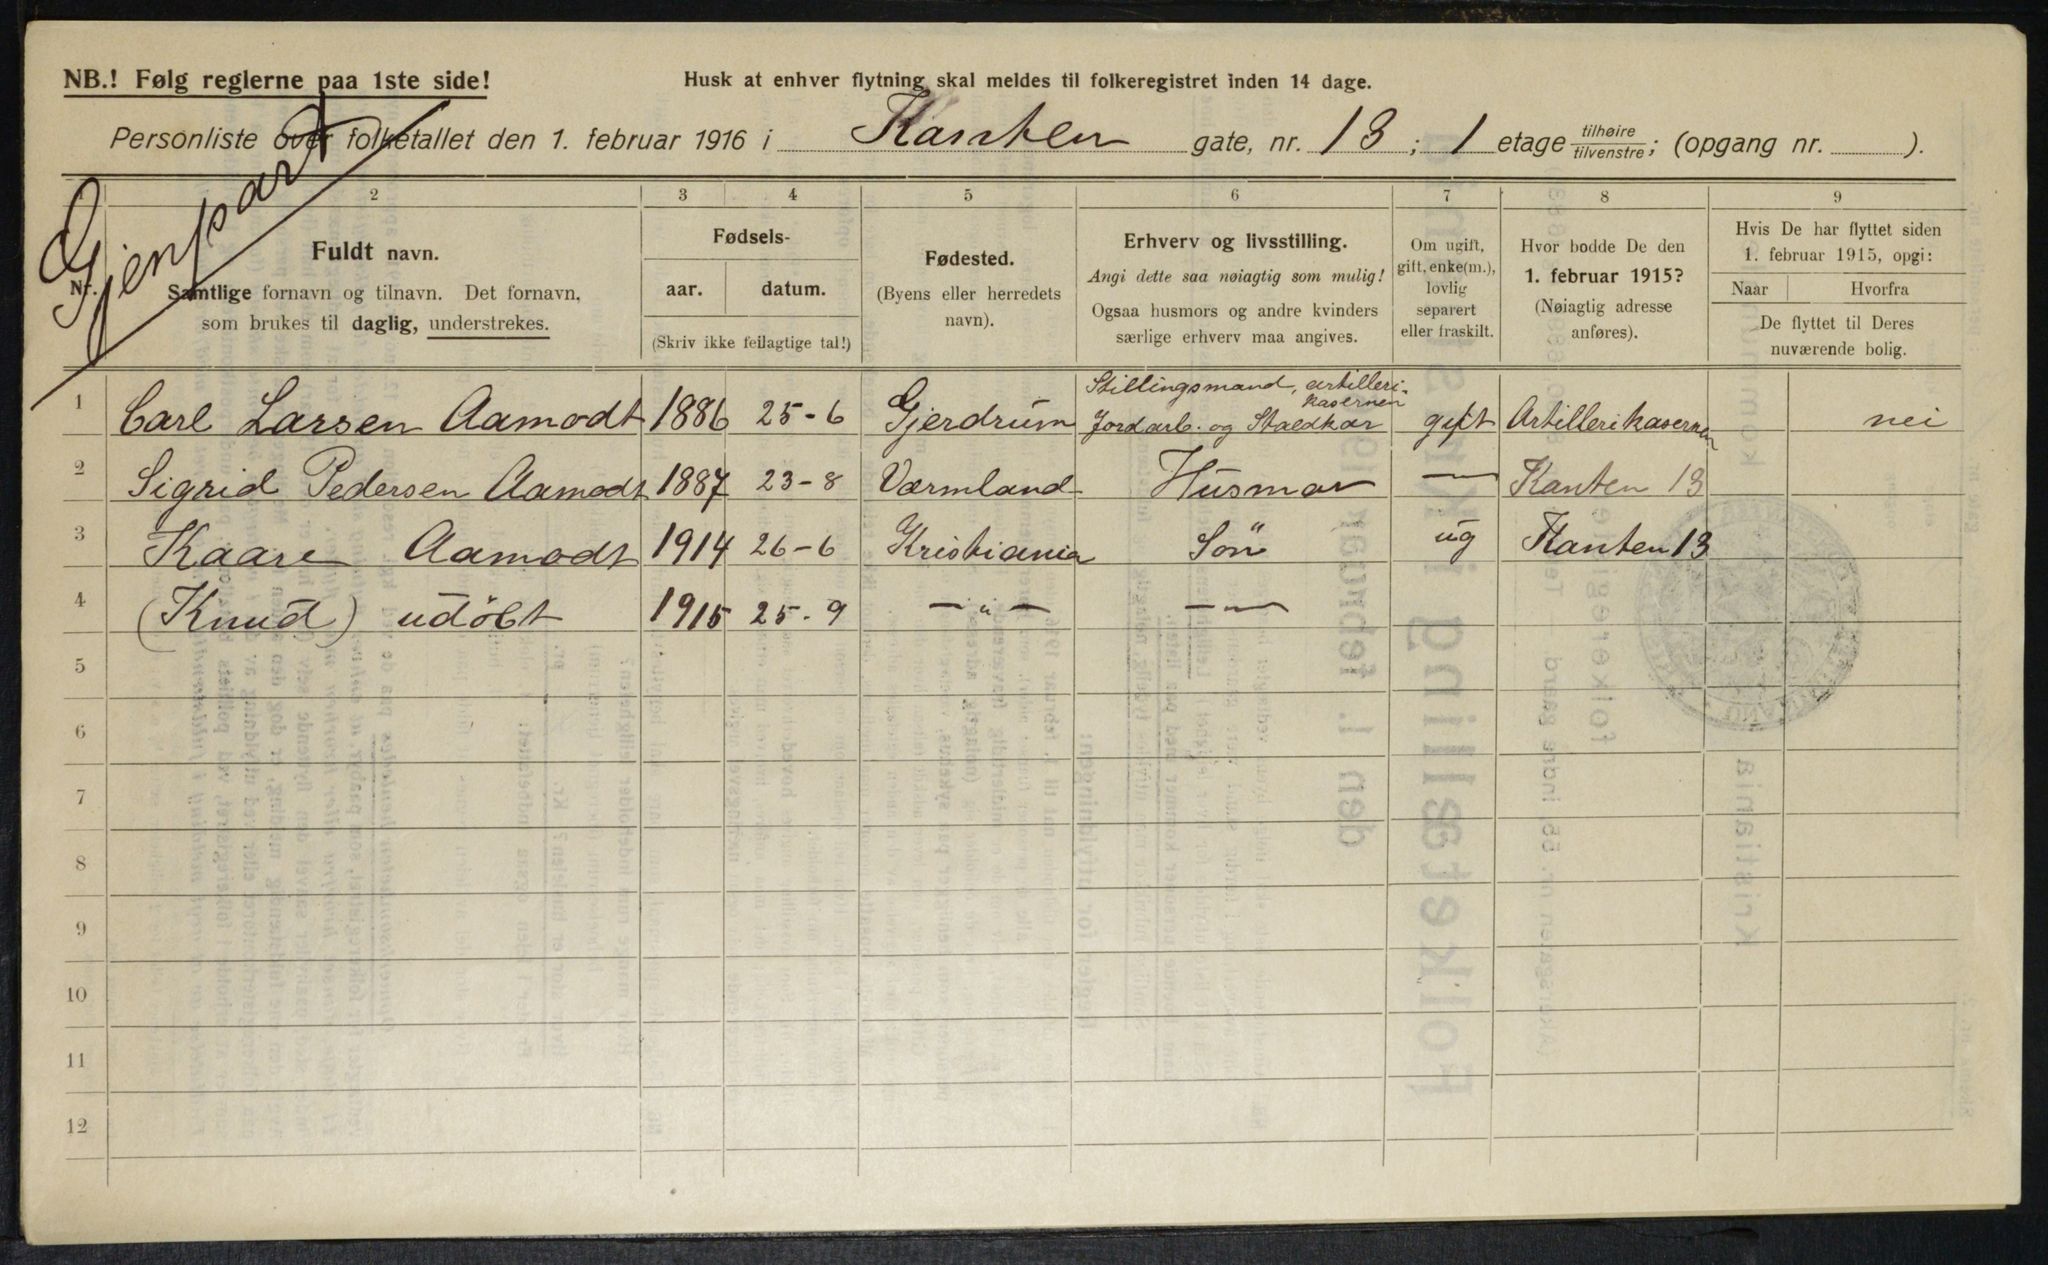 NB.! Følg reglerne paa 1ste side!
Husk at enhver flytning skal meldes til folkeregistret inden 14 dage.
Gjenpart
Personliste over folketallet den 1. februar 1916 i Kanten gate, nr. 13 ; 1 etage tilhøire/tilvenstre; (opgang nr. ).
2 3 4 5 6 7 8 9
Nr.
Fuldt navn.
Samtlige fornavn og tilnavn. Det fornavn,
som brukes til daglig, understrekes.
Fødsels-
aar. datum.
(Skriv ikke feilagtige tal!)
Fødested.
(Byens eller herredets
navn).
Erhverv og livsstilling.
Angi dette saa nøiagtig som mulig!
Ogsaa husmors og andre kvinders
særlige erhverv maa angives.
Om ugift,
gift, enke(m.),
lovlig
separert
eller fraskilt.
Hvor bodde De den
1. februar 1915?
(Nøiagtig adresse
anføres).
Hvis De har flyttet siden
1. februar 1915, opgi:
Naar Hvorfra
De flyttet til Deres
nuværende bolig.
1 Carl Larsen Aamodt 1886 25-6 Gjerdrum Stillingsmand, artilleri-
kasernen
Jordarb. og Staldkar gift Artillerikasernen nei
2 Sigrid Pedersen Aamodt 1887 23-8 Værmland Husmor — Kanten 13
3 Kaare Aamodt 1914 26-6 Kristiania Sön ug Kanten 13
4 (Knud) udöbt 1915 25-9 —"— —"—
5
6
7
8
9
10
11
12